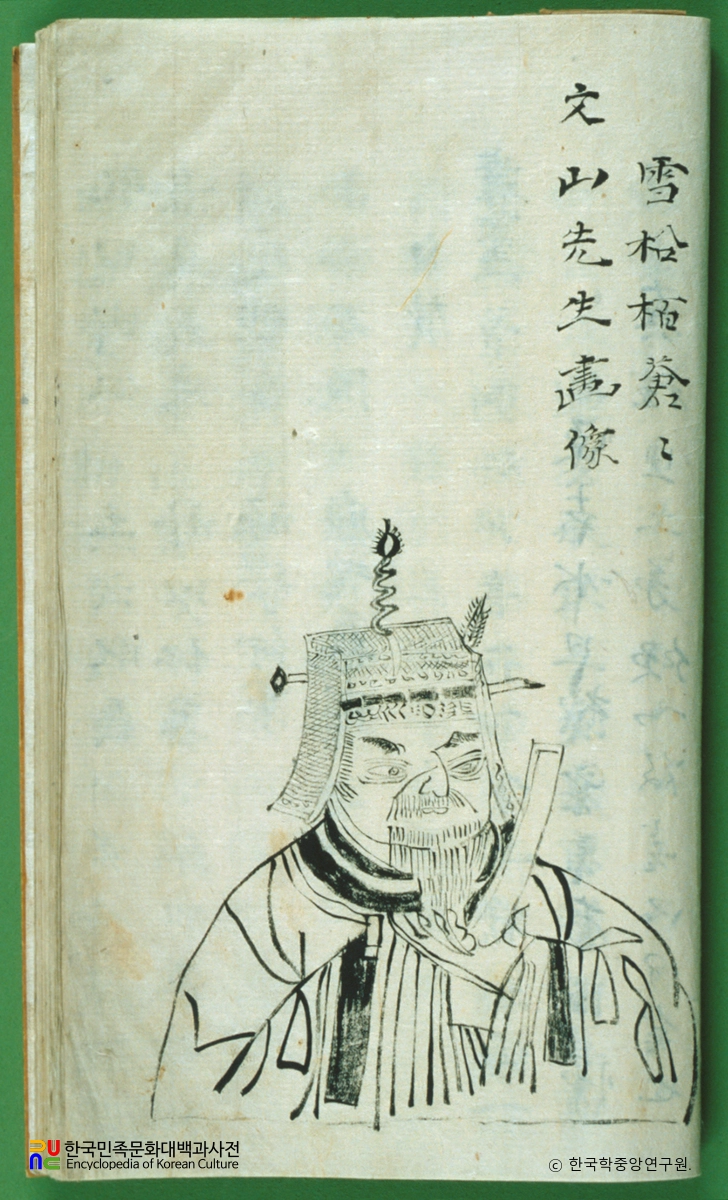 雪松栢蒼〻
文山先生畵像
한국민족문화대백과사전
Encyclopedia of Korean Culture
© 한국학중앙연구원.